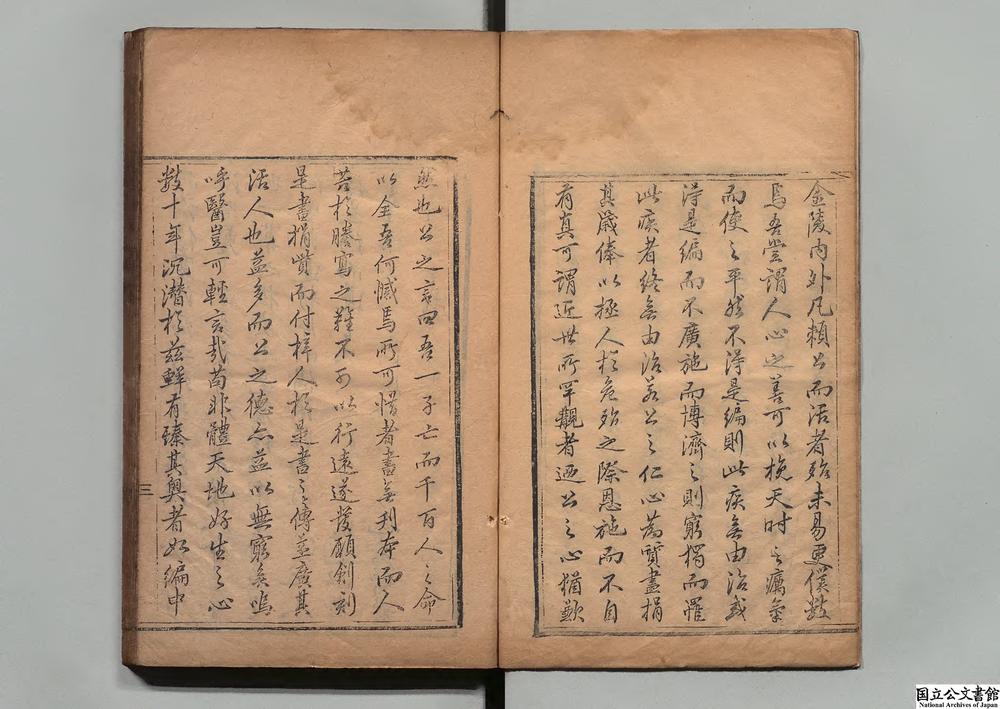 金陵内外凡頼公而活者殆未易更僕数
焉吾嘗謂人心之善可以挽天時之癘氣
而使之平然不得是編則此疾無由治或
得是編而不廣施而博濟之則窮獨而罹
此疾者終無由治若公之仁心為質盡捐
其歳俸以極人於危殆之際恩施而不自
有真可謂近世所罕覩者廼公之心猶歉
然也公之言曰吾一子亡而千百人之命
以全吾何慽焉所可惜者書無刊本而人
苦於謄寫之難不可以行遠遂發願創刻
是書捐貲而付梓人於是書之傳益廣其
活人也益多而公之德亦益以無窮矣嗚
呼醫豈可輕言哉苟非體天地好生之心
数十年沉潜於茲鮮有臻其奥者如編中
三
国立公文書館
National Archives of Japan